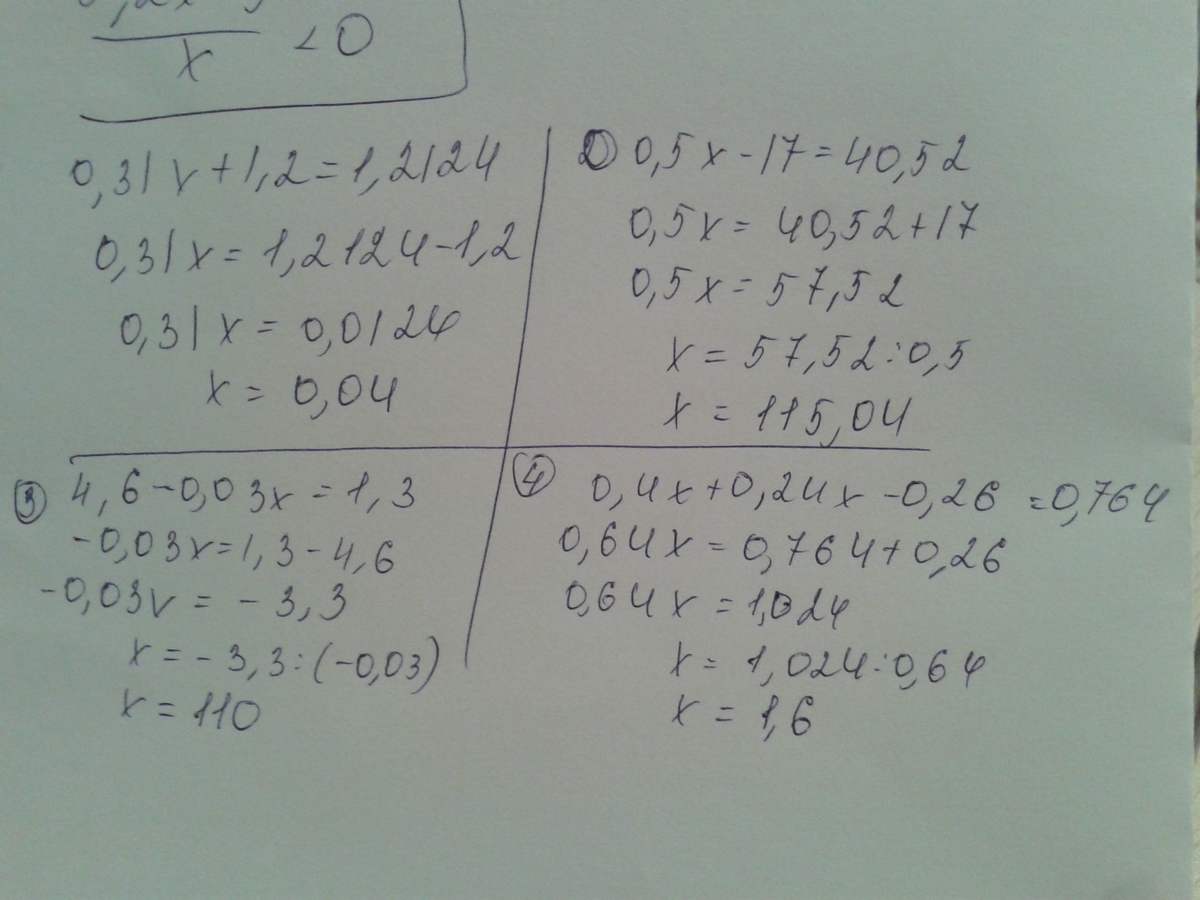 x < 0
0,31x+1,2=1,2124
0,31x=1,2124-1,2
0,31x=0,0124
x=0,04
2 0,5x-17=40,52
0,5x=40,52+17
0,5x=57,52
x=57,52:0,5
x=115,04
3 4,6-0,03x=1,3
-0,03x=1,3-4,6
-0,03x=-3,3
x=-3,3:(-0,03)
x=110
4 0,4x+0,24x-0,26=0,764
0,64x=0,764+0,26
0,64x=1,024
x=1,024:0,64
x=1,6